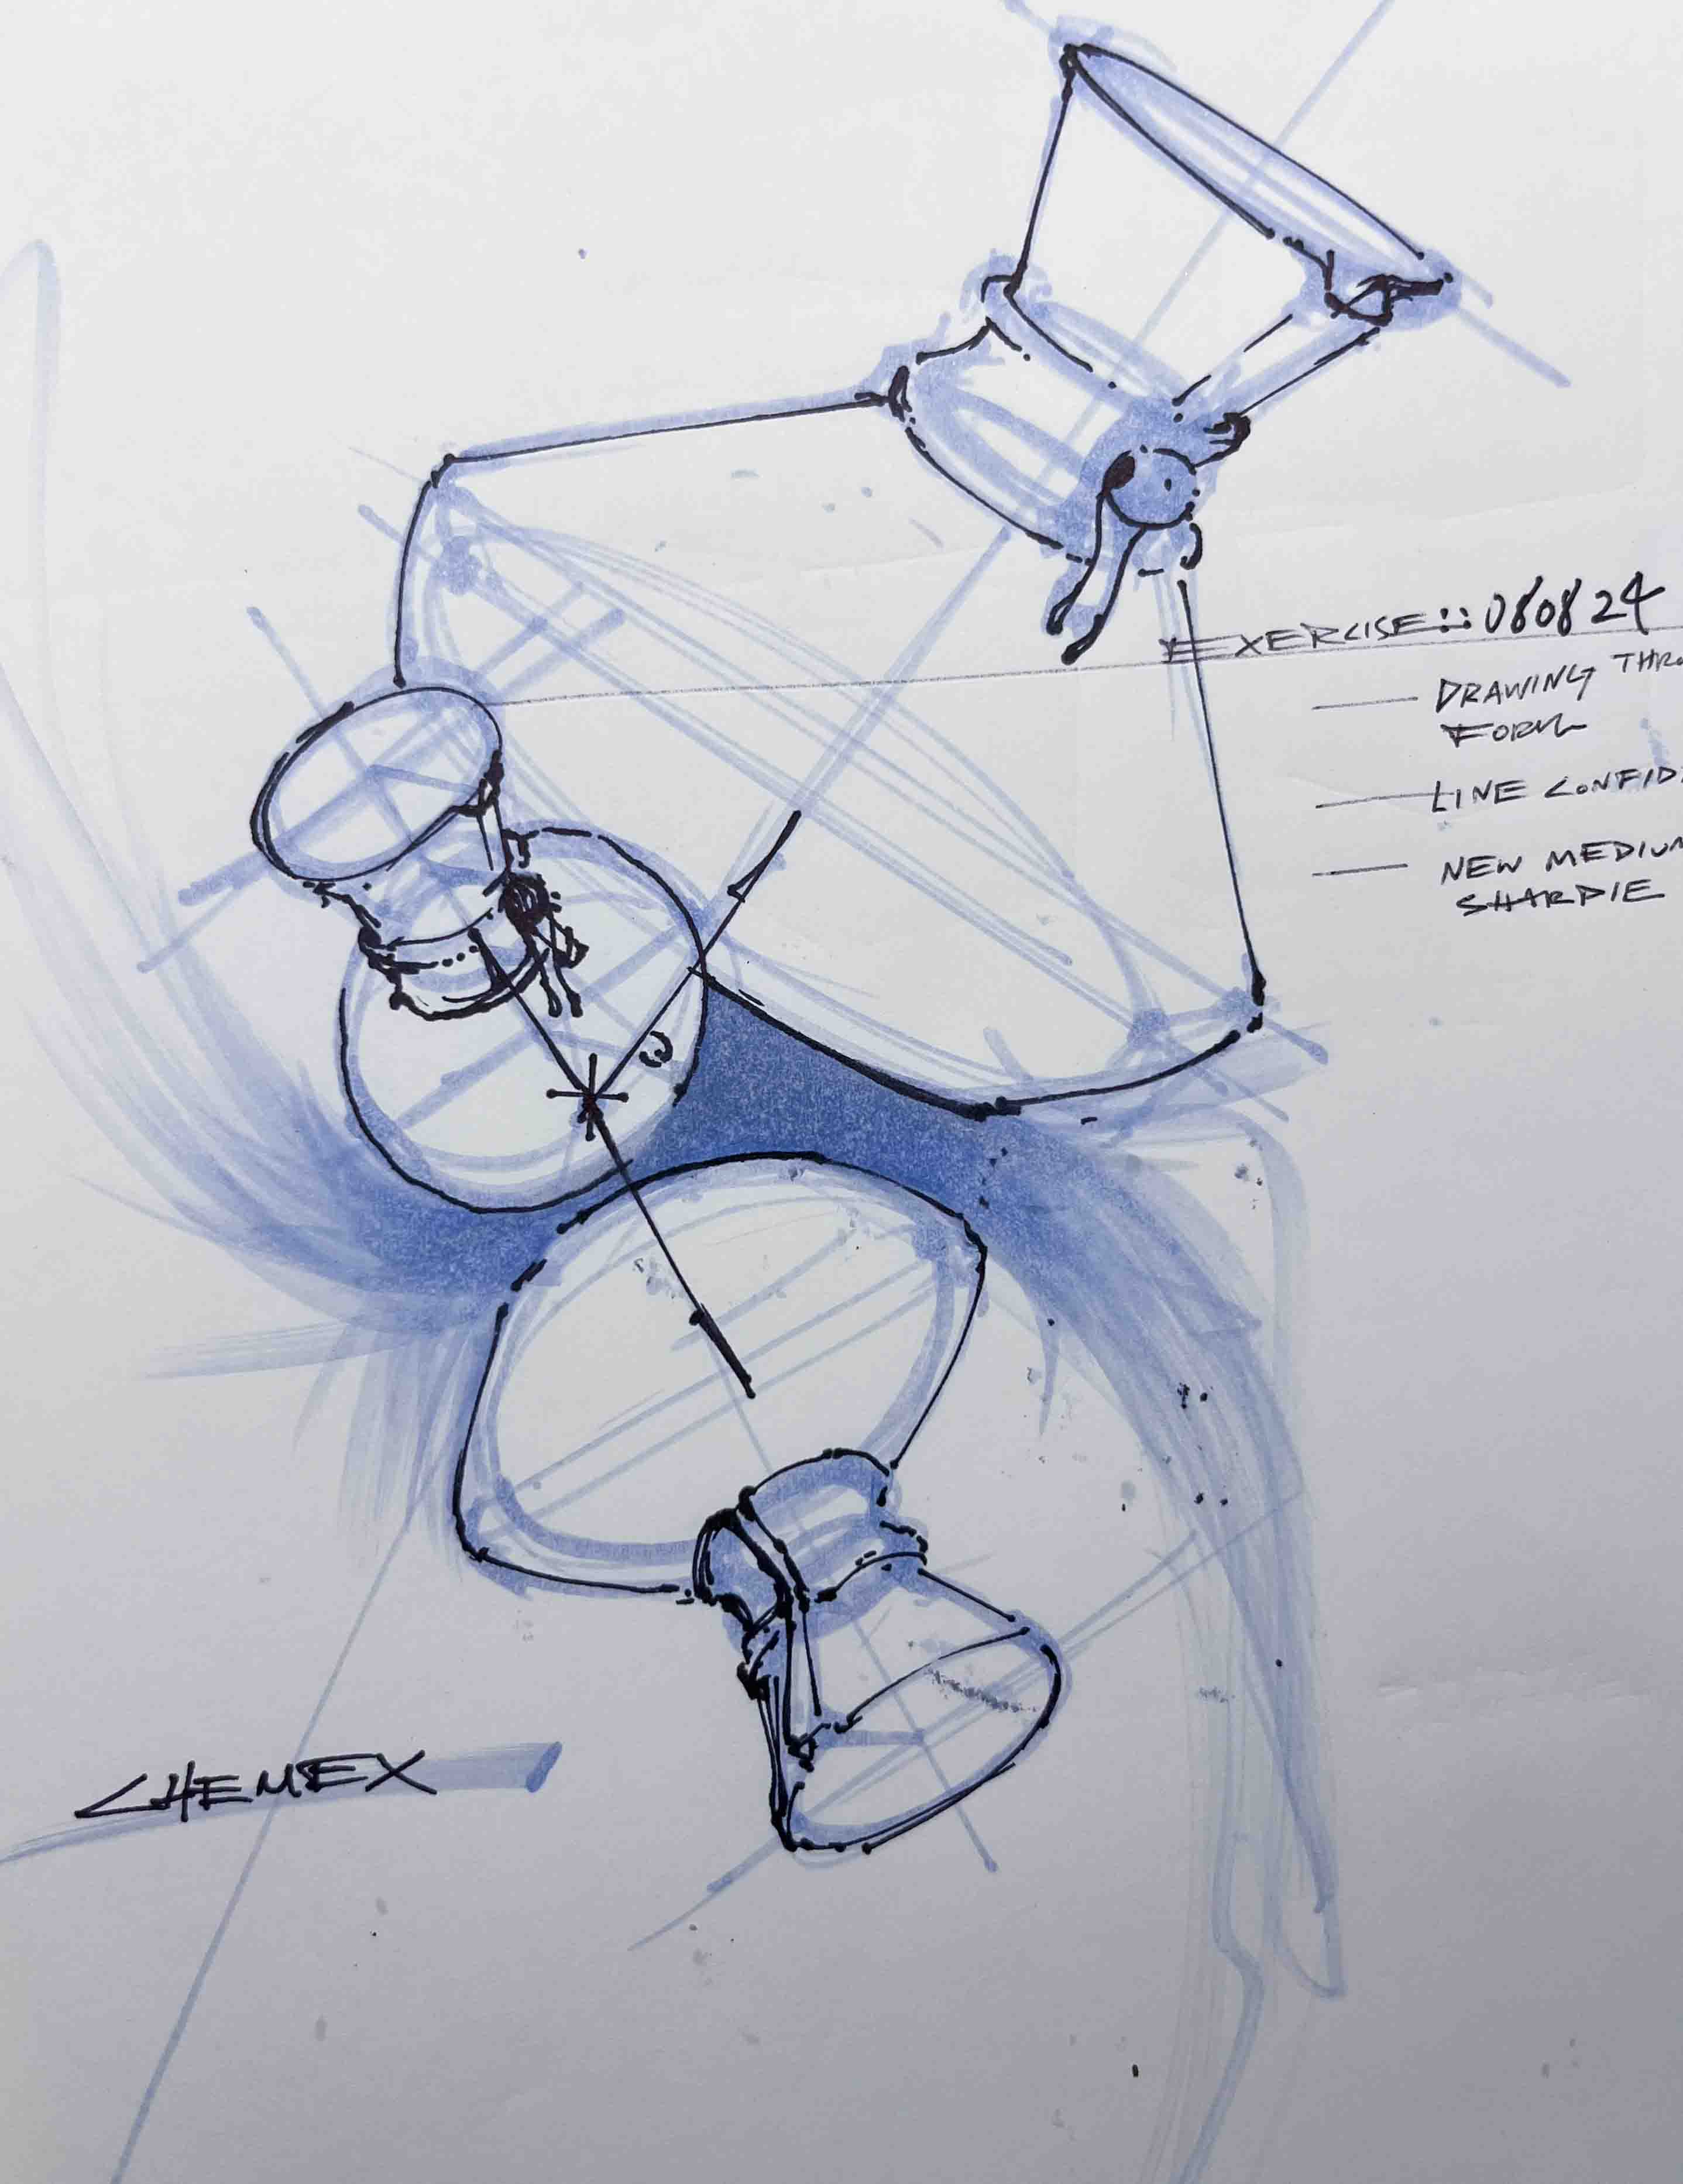 EXERCISE:: 080824
— DRAWING THRO
FORM
— LINE CONFID
— NEW MEDIUM
SHARPIE
CHEMEX